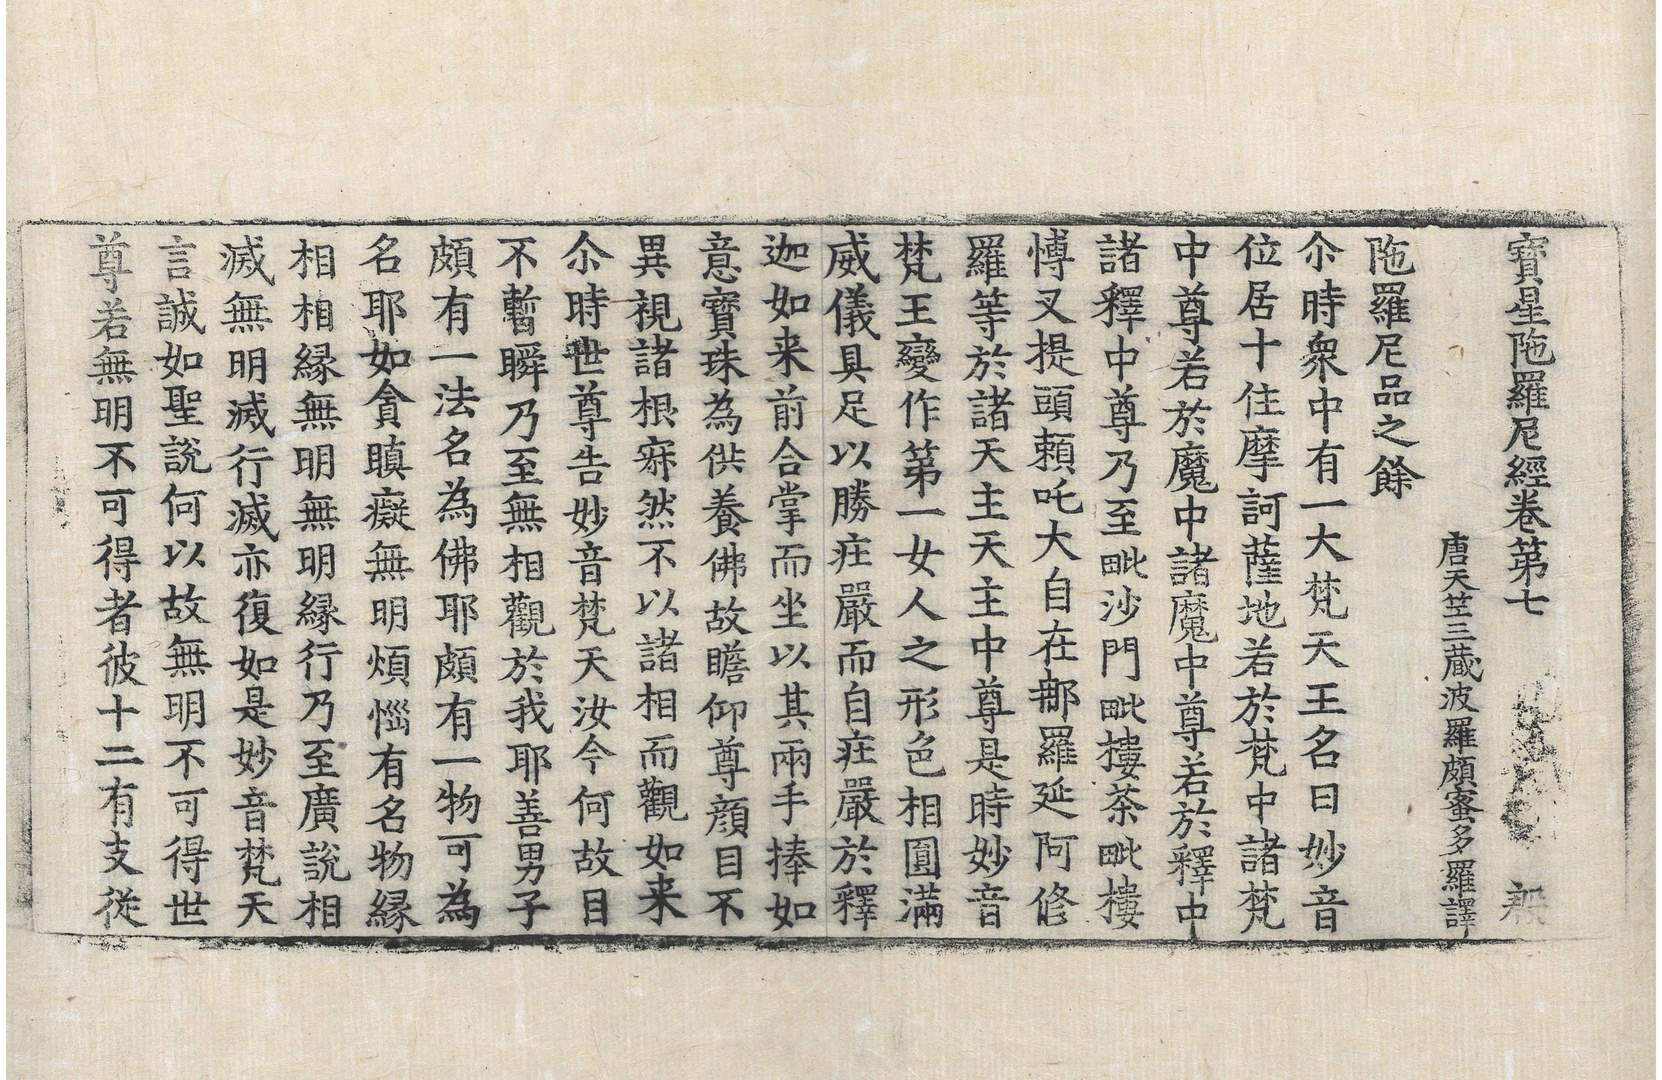 寶星陁羅尼經卷第七
唐天竺三藏波羅頗蜜多羅譯
陁羅尼品之餘
尒時衆中有一大梵天王名曰妙音
位居十住摩訶薩地若於梵中諸梵
中尊若於魔中諸魔中尊若於釋中
諸釋中尊乃至毗沙門毗樓荼毗樓
愽叉提頭賴吒大自在那羅延阿修
羅等於諸天主天主中尊是時妙音
梵王變作第一女人之形色相圓滿
威儀具足以勝庄嚴而自庄嚴於釋
迦如来前合掌而坐以其兩手捧如
意寶珠為供養佛故瞻仰尊顏目不
異視諸根寂然不以諸相而觀如来
尒時世尊告妙音梵天汝今何故目
不暫瞬乃至無相觀於我耶善男子
頗有一法名為佛耶頗有一物可為
名耶如貪瞋癡無明煩惱有名物緣
相相緣無明無明緣行乃至廣說相
滅無明滅行滅亦復如是妙音梵天
言誠如聖說何以故無明不可得世
尊若無明不可得者彼十二有支從